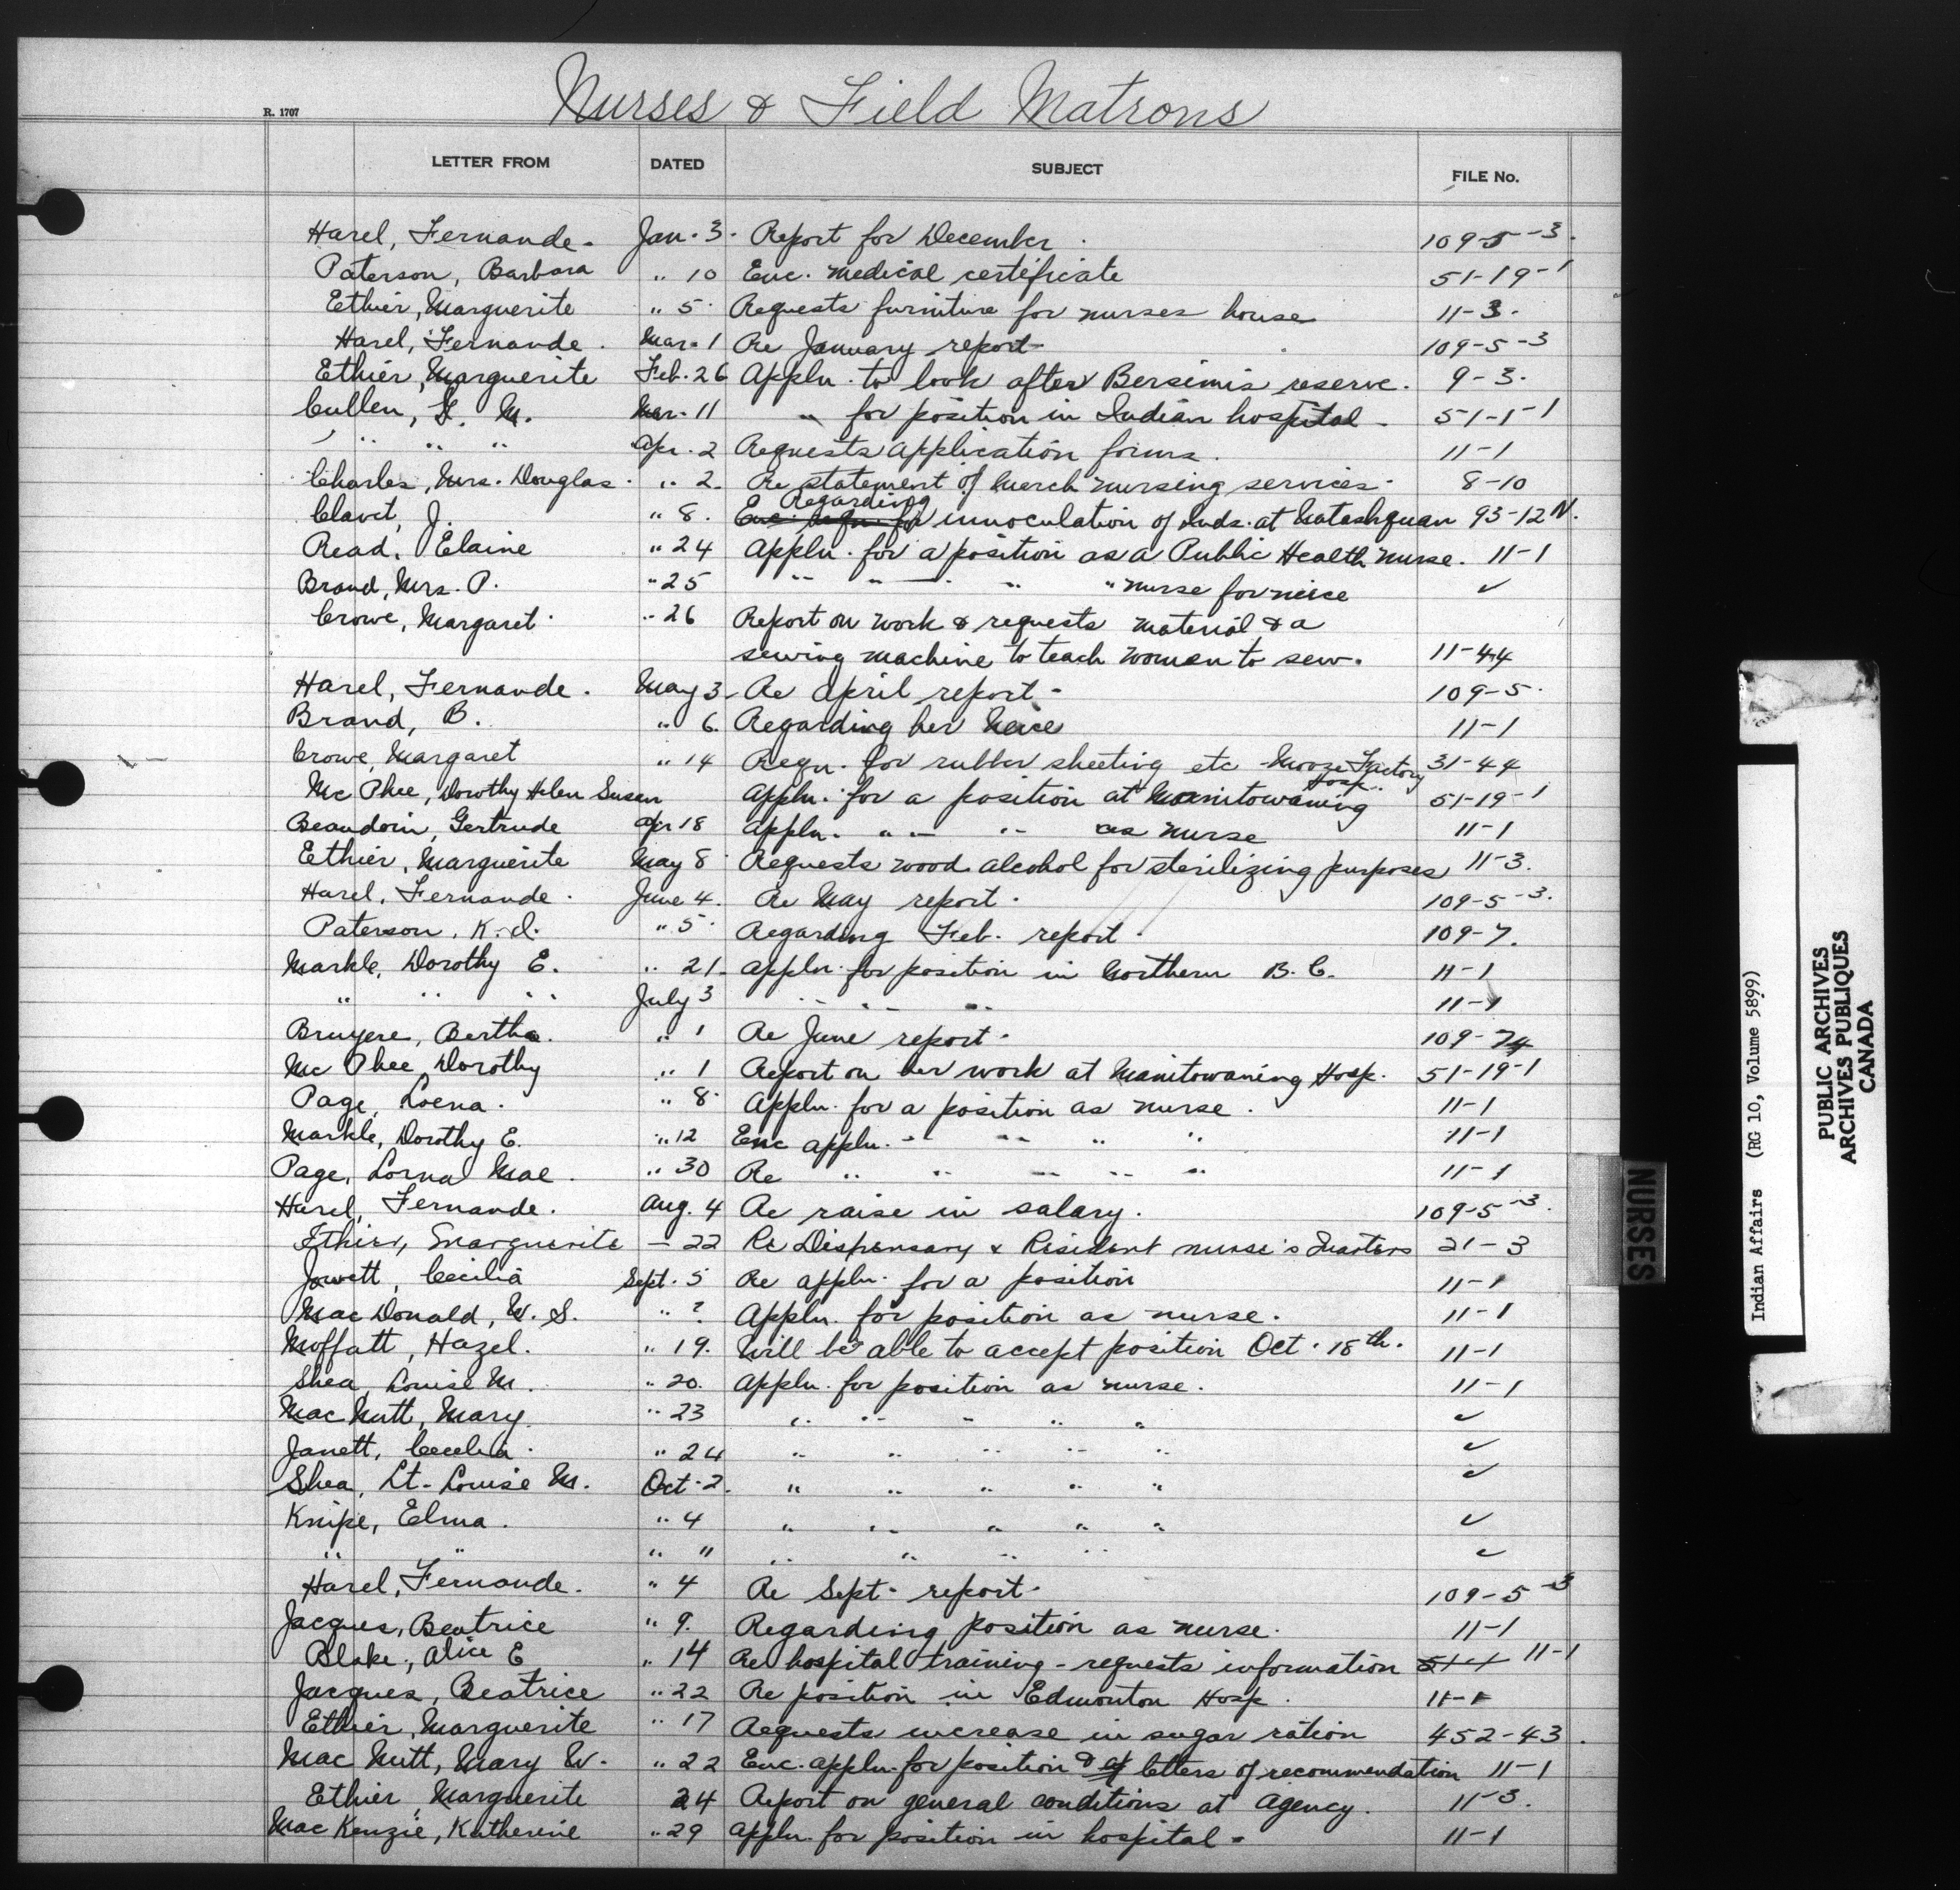 Nurses & Field Matrons
R. 1707
LETTER FROM DATED SUBJECT FILE No.
Harel, Fernande. Jan. 3. Report for December. 109-5-3.
Paterson, Barbara " 10 Enc. medical certificate 51-19-1
Ethier, Marguerite " 5. Requests furniture for nurses house 11-3.
Harel, Fernande. Mar. 1 Re January report 109-5-3
Ethier, Marguerite Feb. 26 Appln. to look after Bersimis reserve. 9-3.
Cullen, M. Mar. 11 " for position in Indian hospital. 51-1-1
" " " Apr. 2 Requests application forms. 11-1
Charles, Mrs. Douglas. " 2. Re statement of March nursing services. 8-10
Regarding
Clavet, J. " 8. innoculation of Inds. at Natashquan 93-12 N.
Read, Elaine " 24 Appln. for a position as a Public Health nurse. 11-1
Brand, Mrs. P. " 25 " " " " nurse for neice ✓
Crowe, Margaret. " 26 Report on work & requests material & a
sewing machine to teach women to sew. 11-44
Harel, Fernande. May 3. Re April report. 109-5.
Brand, B. " 6. Regarding her Neice 11-1
Crowe, Margaret " 14 Requ. for rubber sheeting etc - Moose Factory 31-44
Hosp.
Mc Phee, Dorothy Helen Susan Appln. for a position at Manitowaning 51-19-1
Beaudoin, Gertrude Apr 18 Appln. " " " as nurse 11-1
Ethier, Marguerite May 8 Requests wood alcohol for sterilizing purposes 11-3.
Harel, Fernande. June 4. Re May report. 109-5-3.
Paterson, K. I. " 5. Regarding Feb. report. 109-7.
Markle, Dorothy E. " 21. Appln. for position in Northern B.C. 11-1
" " " July 3 " " " 11-1
Bruyere, Bertha. " 1 Re June report. 109-74
Mc Phee, Dorothy " 1 Report on her work at Manitowaning Hosp. 51-19-1
Page, Lorna. " 8. Appln. for a position as nurse. 11-1
Markle, Dorothy E. " 12 Enc appln. " " " " 11-1
Page, Lorna Mae. " 30 Re " " " " " 11-1
Harel, Fernande. Aug. 4 Re raise in salary. 109-5-3.
Ethier, Marguerite — 22 Re Dispensary & Resident nurse's Quarters 21-3
Jowett, Cecilia Sept. 5 Re appln. for a position 11-1
Mac Donald, W. S. " ? Appln. for position as nurse. 11-1
Moffatt, Hazel. " 19. Will be able to accept position Oct. 18th. 11-1
Shea, Louise M. " 20. Appln. for position as nurse. 11-1
Mac Nutt, Mary. " 23 " " " " " ✓
Janett, Cecelia. " 24 " " " " " ✓
Shea, Lt. Louise M. Oct. 2. " " " " " ✓
Knipe, Elma. " 4 " " " " " ✓
" " " 11 " " " " ✓
Harel, Fernande. " 4 Re Sept. report. 109-5-3
Jacques, Beatrice " 9. Regarding position as nurse. 11-1
Blake, Alice E " 14 Re hospital training - requests information 51-1 11-1
Jacques, Beatrice " 22 Re position in Edmonton Hosp. 11-1
Ethier, Marguerite " 17 Requests increase in sugar ration 452-43.
Mac Nutt, Mary W. " 22 Enc. appln. for position & letters of recommendation 11-1
Ethier, Marguerite 24 Report on general conditions at Agency. 11-3.
Mac Kenzie, Katherine " 29 Appln. for position in hospital. 11-1
NURSES
Indian Affairs (RG 10, Volume 5899)
PUBLIC ARCHIVES
ARCHIVES PUBLIQUES
CANADA